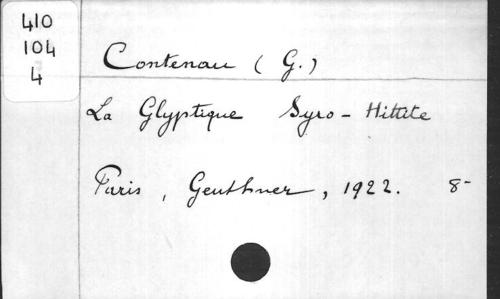 410
104
4
Contenau (G.)
La Glyptique Syro-Hittite
Paris, Geuthner, 1922. 8-